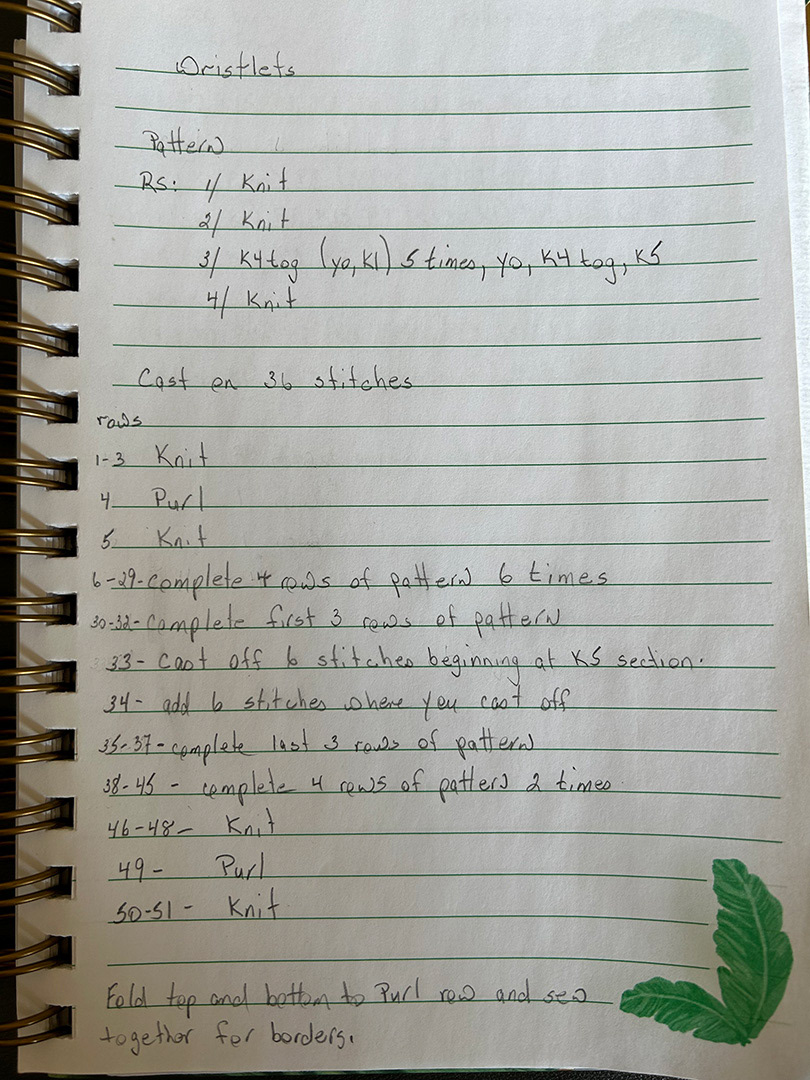 Wristlets
Pattern
RS: 1/ Knit
2/ Knit
3/ K4tog (yo, K1) 5 times, yo, K4 tog, K5
4/ Knit
Cast on 36 stitches
rows
1-3 Knit
4 Purl
5 Knit
6-29-complete 4 rows of pattern 6 times
30-32-complete first 3 rows of pattern
33- cast off 6 stitches beginning at K5 section.
34- add 6 stitches where you cast off
35-37-complete last 3 rows of pattern
38-45 - complete 4 rows of pattern 2 times
46-48- Knit
49- Purl
50-51- Knit
Fold top and bottom to Purl row and sew
together for borders.